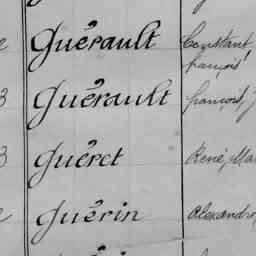 Guérault Constant,
françois
3 Guérault françois,
3 Guéret René, Ma
Guérin Alexandre